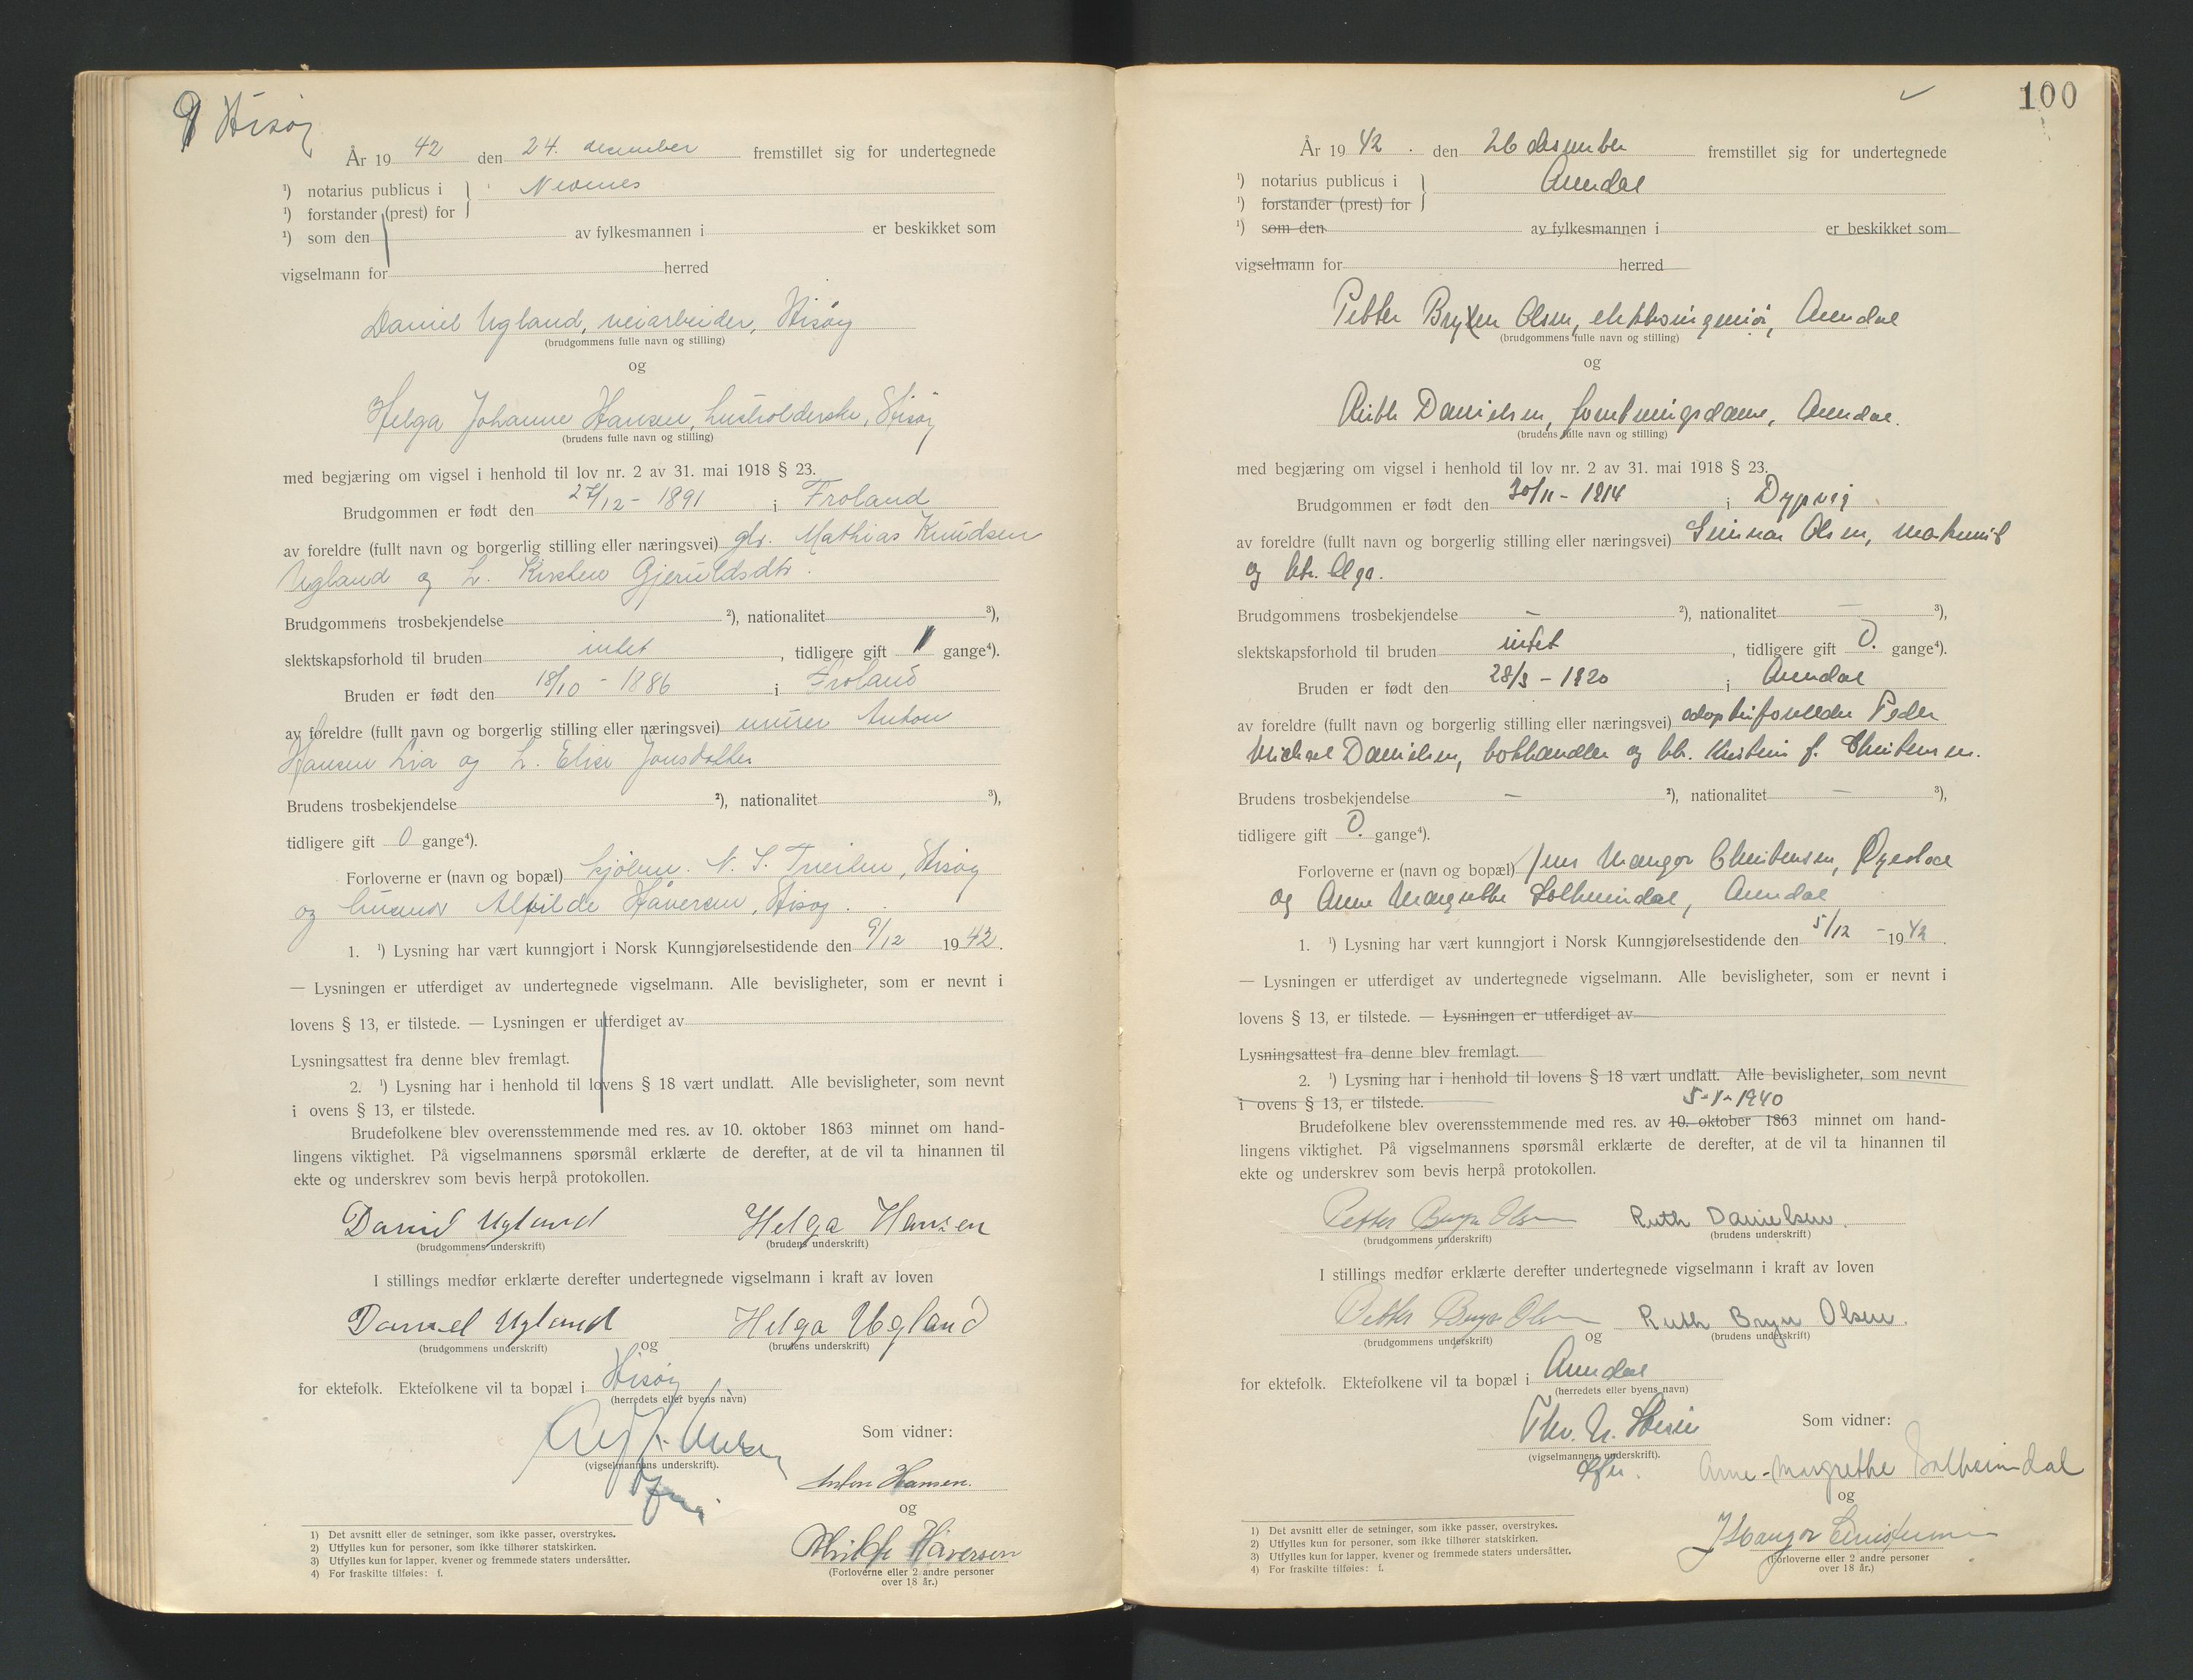 Hisøy
År 19 42 den 24. desember fremstillet sig for undertegnede
¹) notarius publicus i } Nedenes
¹) forstander (prest) for
¹) som den av fylkesmannen i er beskikket som
vigselmann for herred
Daniel Ugland, veiarbeider, Hisøy
(brudgommens fulle navn og stilling)
og
Helga Johanne Hansen, husholderske, Hisøy
(brudens fulle navn og stilling)
med begjæring om vigsel i henhold til lov nr. 2 av 31. mai 1918 § 23.
Brudgommen er født den 27/12 - 1891 i Froland
av foreldre (fullt navn og borgerlig stilling eller næringsvei) gbr. Mathias Knudsen
Ugland og h. Kirsten Gjeruldsdtr.
Brudgommens trosbekjendelse ²), nationalitet ³),
slektskapsforhold til bruden intet, tidligere gift 1 gange⁴).
Bruden er født den 18/10 - 1886 i Froland
av foreldre (fullt navn og borgerlig stilling eller næringsvei) murer Anton
Hansen Lia og h. Elise Jonsdatter
Brudens trosbekjendelse ²), nationalitet ³),
tidligere gift 0 gange⁴).
Forloverne er (navn og bopæl) N. S. Hisøy
og Håversen, Hisøy.
1. ¹) Lysning har vært kunngjort i Norsk Kunngjørelsestidende den 9/12 1942.
— Lysningen er utferdiget av undertegnede vigselmann. Alle bevisligheter, som er nevnt i
lovens § 13, er tilstede. — Lysningen er utferdiget av
Lysningsattest fra denne blev fremlagt.
2. ¹) Lysning har i henhold til lovens § 18 vært undlatt. Alle bevisligheter, som nevnt
i ovens § 13, er tilstede.
Brudefolkene blev overensstemmende med res. av 10. oktober 1863 minnet om hand-
lingens viktighet. På vigselmannens spørsmål erklærte de derefter, at de vil ta hinannen til
ekte og underskrev som bevis herpå protokollen.
Daniel Ugland Helga Hansen
(brudgommens underskrift) (brudens underskrift)
I stillings medfør erklærte derefter undertegnede vigselmann i kraft av loven
Daniel Ugland og Helga Ugland
(brudgommens underskrift) (brudens underskrift)
for ektefolk. Ektefolkene vil ta bopæl i Hisøy
(herredets eller byens navn)
Som vidner:
(vigselmannens underskrift).
Anton Hansen.
og
Håversen
(Forloverne eller 2 andre personer
over 18 år.)
1) Det avsnitt eller de setninger, som ikke passer, overstrykes.
2) Utfylles kun for personer, som ikke tilhører statskirken.
3) Utfylles kun for lapper, kvener og fremmede staters undersåtter.
4) For fraskilte tilføies: f.
100
År 19 42. den 26 desember fremstillet sig for undertegnede
¹) notarius publicus i } Arendal
¹) forstander (prest) for
¹) som den av fylkesmannen i er beskikket som
vigselmann for herred
Petter Bryn Olsen, elektroingeniør, Arendal
(brudgommens fulle navn og stilling)
og
Ruth Danielsen, forretningsdame, Arendal.
(brudens fulle navn og stilling)
med begjæring om vigsel i henhold til lov nr. 2 av 31. mai 1918 § 23.
Brudgommen er født den 30/11 - 1914 i Dypvåg
av foreldre (fullt navn og borgerlig stilling eller næringsvei) Gunnar Olsen, maskinist
og htr. Olga.
Brudgommens trosbekjendelse — ²), nationalitet — ³),
slektskapsforhold til bruden intet, tidligere gift 0. gange⁴).
Bruden er født den 28/3 - 1920 i Arendal
av foreldre (fullt navn og borgerlig stilling eller næringsvei) adoptivforeldre Peder
Michael Danielsen, bokhandler og htr. Kristine f. Christensen.
Brudens trosbekjendelse — ²), nationalitet — ³),
tidligere gift 0. gange⁴).
Forloverne er (navn og bopæl) Jens Mangor Christensen, Øyestad
og Anne Margrethe Solheimdal, Arendal
1. ¹) Lysning har vært kunngjort i Norsk Kunngjørelsestidende den 5/12 - 1942.
— Lysningen er utferdiget av undertegnede vigselmann. Alle bevisligheter, som er nevnt i
lovens § 13, er tilstede. — Lysningen er utferdiget av
Lysningsattest fra denne blev fremlagt.
2. ¹) Lysning har i henhold til lovens § 18 vært undlatt. Alle bevisligheter, som nevnt
i ovens § 13, er tilstede. 5-1-1940
Brudefolkene blev overensstemmende med res. av 10. oktober 1863 minnet om hand-
lingens viktighet. På vigselmannens spørsmål erklærte de derefter, at de vil ta hinannen til
ekte og underskrev som bevis herpå protokollen.
Petter Bryn Olsen Ruth Danielsen.
(brudgommens underskrift) (brudens underskrift)
I stillings medfør erklærte derefter undertegnede vigselmann i kraft av loven
Petter Bryn Olsen og Ruth Bryn Olsen.
(brudgommens underskrift) (brudens underskrift)
for ektefolk. Ektefolkene vil ta bopæl i Arendal
(herredets eller byens navn)
Som vidner:
(vigselmannens underskrift).
Anne-Margrethe Solheimdal
og
J Mangor Christensen
(Forloverne eller 2 andre personer
over 18 år.)
1) Det avsnitt eller de setninger, som ikke passer, overstrykes.
2) Utfylles kun for personer, som ikke tilhører statskirken.
3) Utfylles kun for lapper, kvener og fremmede staters undersåtter.
4) For fraskilte tilføies: f.